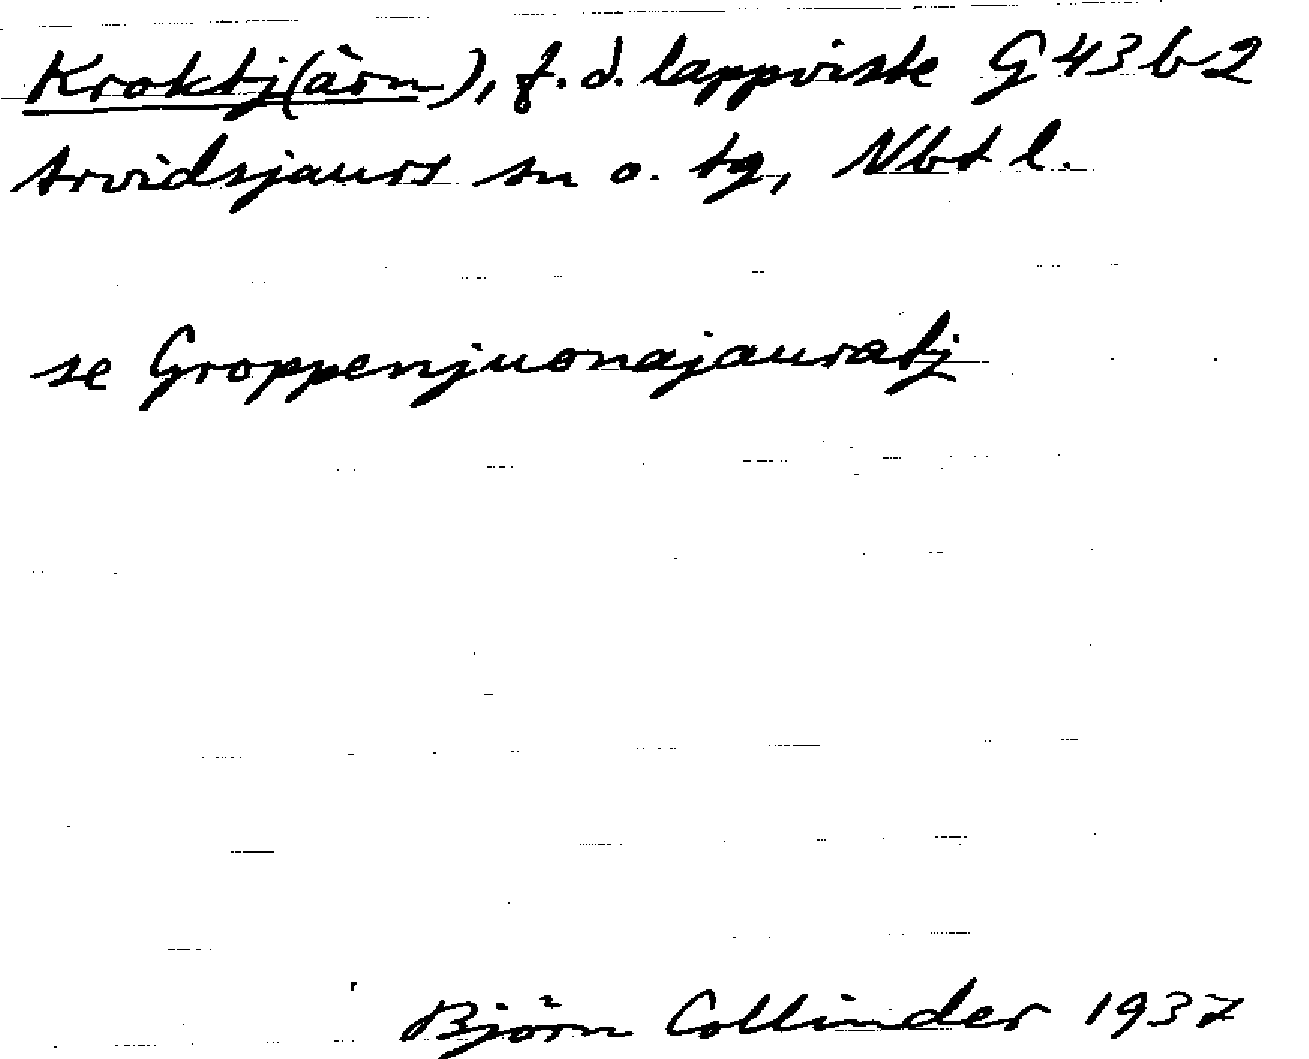 Kroktj(ärn), f.d. lappviste G 43 b 2
Arvidsjaurs sn o. tg, Nbt l.
se Groppenjuonajauratj
Björn Collinder 1937